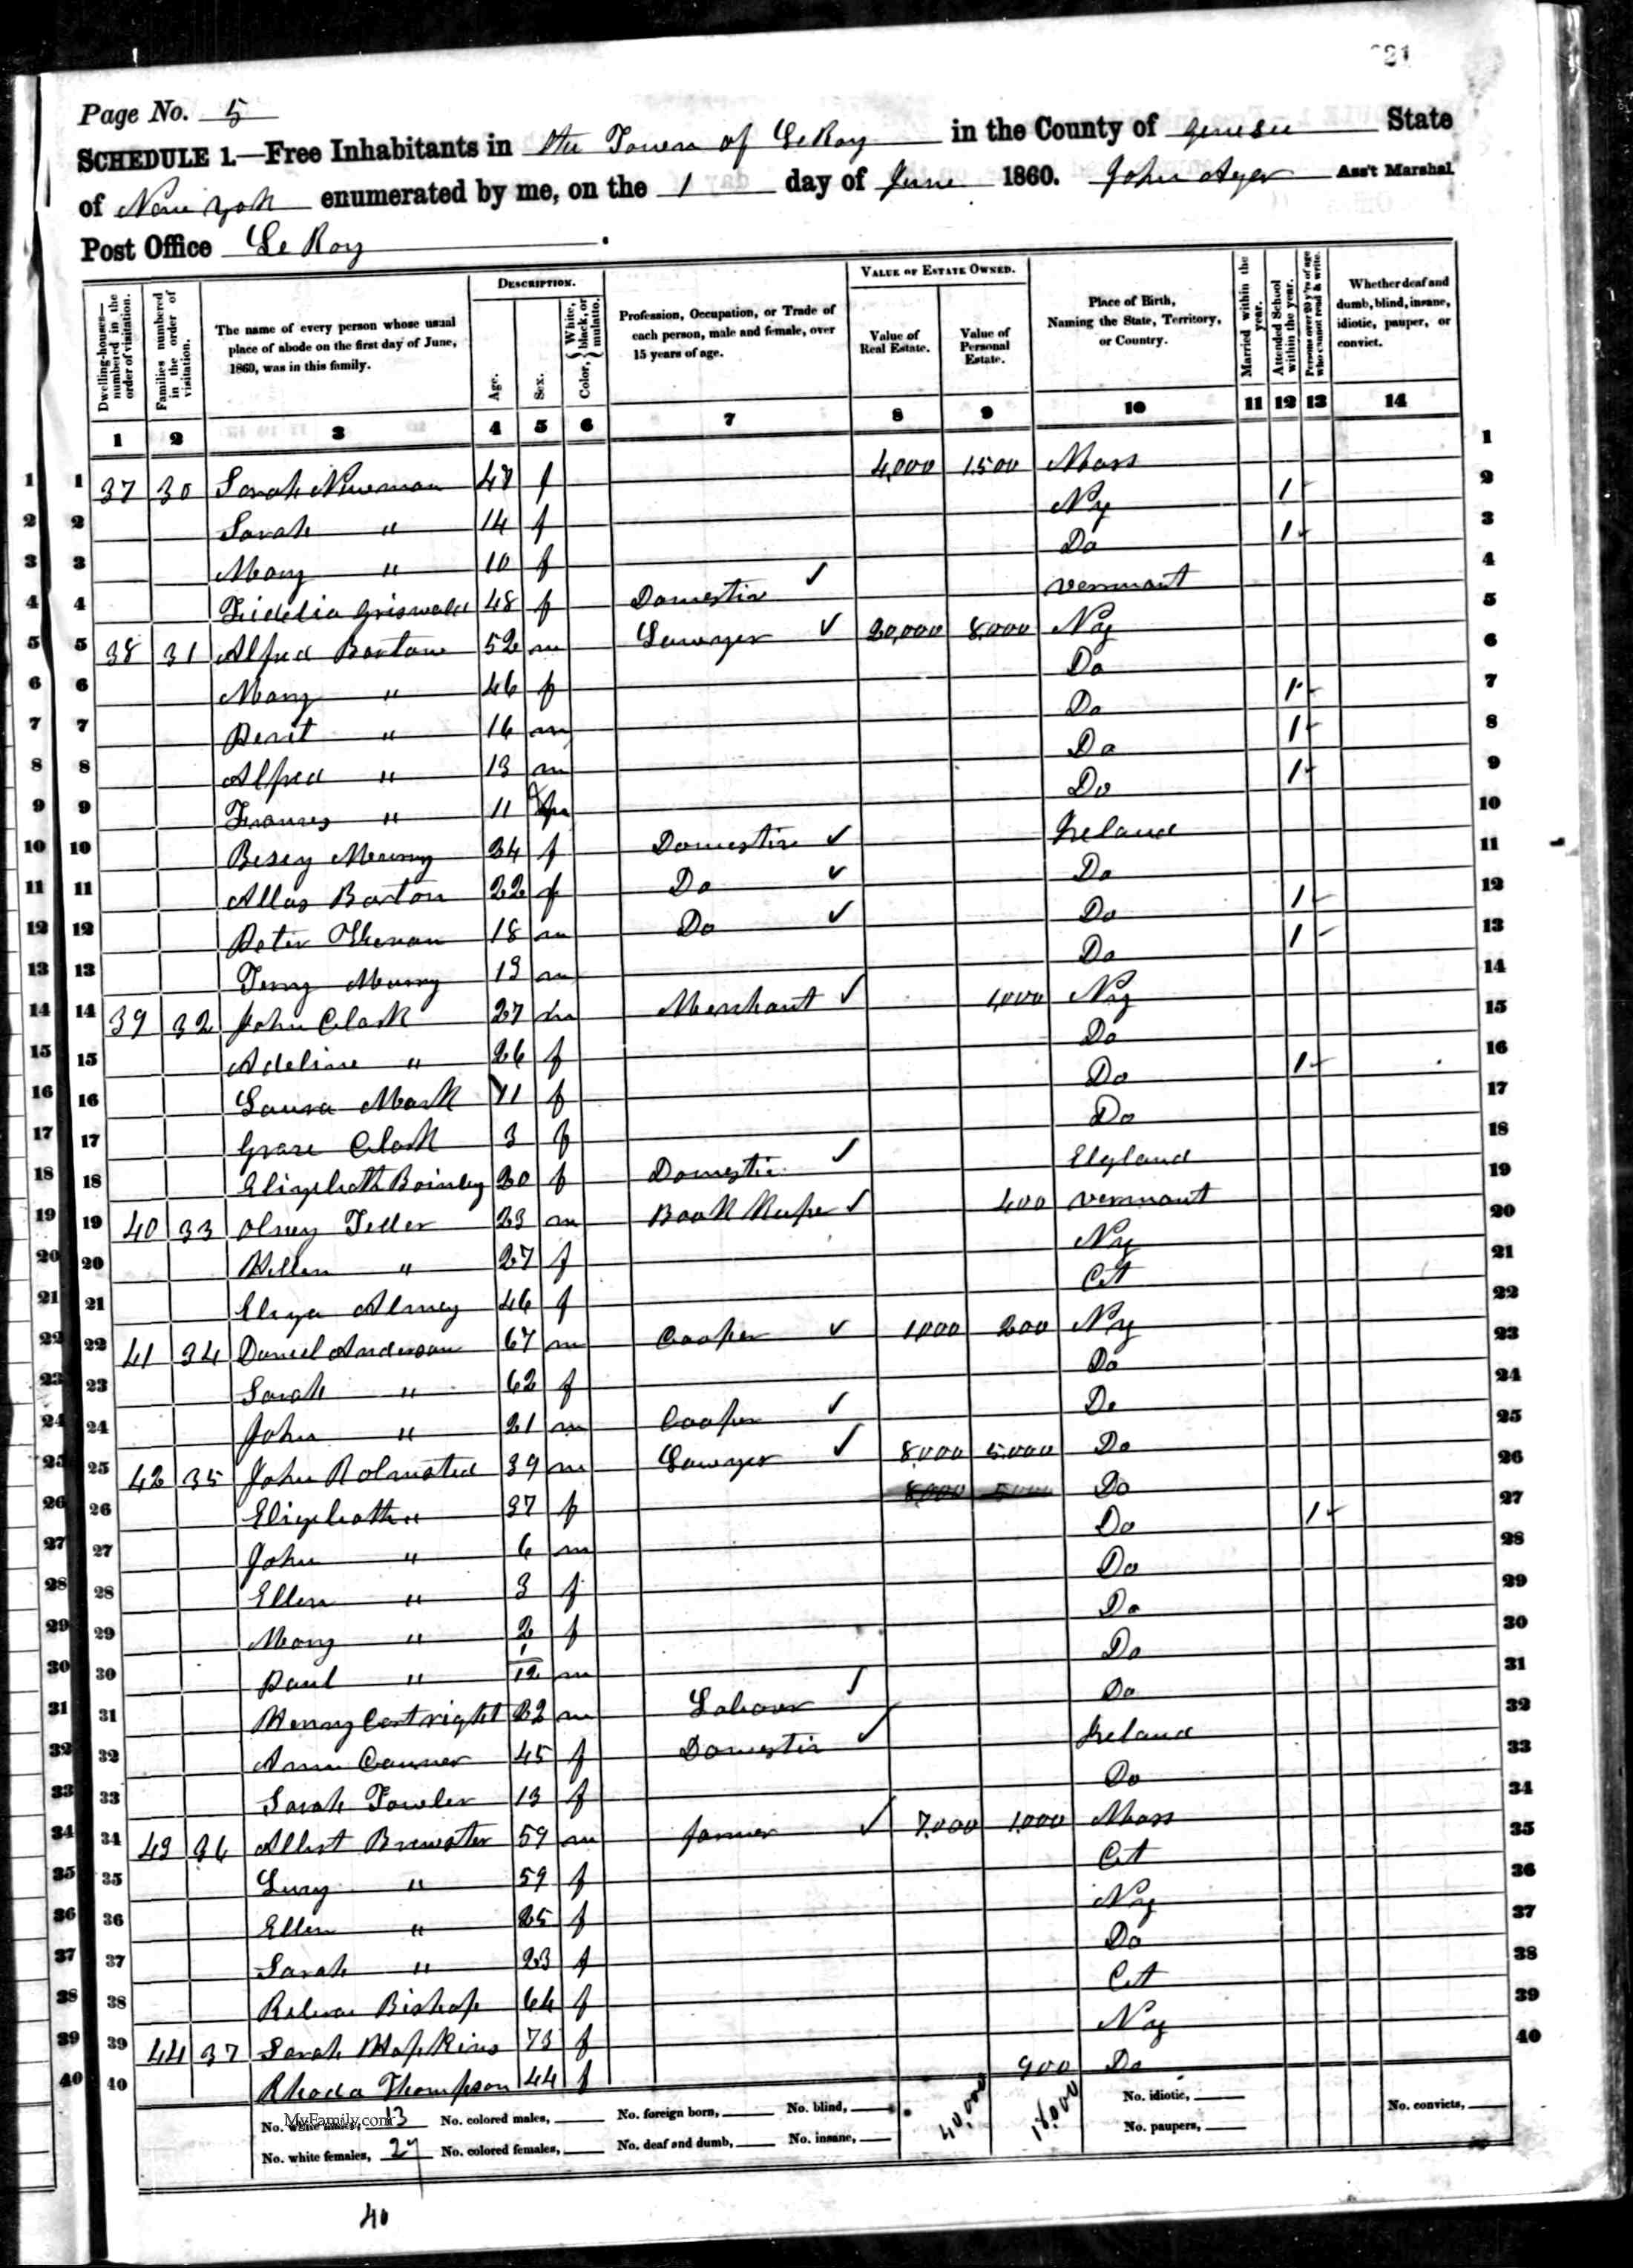 21
Page No. 5
SCHEDULE 1.—Free Inhabitants in the Town of LeRoy in the County of Genesee State
of New York enumerated by me, on the 1 day of June 1860. John Ayer Ass't Marshal
Post Office Le Roy
Dwelling-houses—numbered in the order of visitation.
Families numbered in the order of visitation.
The name of every person whose usual place of abode on the first day of June, 1860, was in this family.
DESCRIPTION.
Age.
Sex.
Color, { White, black, or mulatto.
Profession, Occupation, or Trade of each person, male and female, over 15 years of age.
VALUE OF ESTATE OWNED.
Value of Real Estate.
Value of Personal Estate.
Place of Birth, Naming the State, Territory, or Country.
Married within the year.
Attended School within the year.
Persons over 20 y'rs of age who cannot read & write.
Whether deaf and dumb, blind, insane, idiotic, pauper, or convict.
1 2 3 4 5 6 7 8 9 10 11 12 13 14
1 37 30 Sarah Newman 48 f 4,000 1500 Mass 1
2 Sarah " 14 f Ny 1 2
3 Mary " 10 f Do 1 3
4 Fidelia Griswold 48 f Domestic ✓ Vermont 4
5 38 31 Alfred 52 m Lawyer ✓ 20,000 8,000 Ny 5
6 Mary " 46 f Do 6
7 " 16 m Do 1 7
8 Alfred " 13 m Do 1 8
9 Frances " 11 Do 1 9
10 f Domestic ✓ Ireland 10
11 Barton 22 f Do ✓ Do 11
12 18 m Do ✓ Do 1 12
13 13 m Do 1 13
14 39 32 John Clark 27 m Merchant ✓ 1,000 Ny 14
15 Adeline " 26 f Do 15
16 Laura 11 f Do 1 16
17 Grace Clark 3 f Do 17
18 Elizabeth 20 f Domestic ✓ England 18
19 40 33 Olney 23 m Book Keeper ✓ 400 Vermont 19
20 Hellen " 27 f Ny 20
21 Eliza 46 f Ct 21
22 41 34 Daniel Anderson 67 m Cooper ✓ 1000 200 Ny 22
23 Sarah " 62 f Do 23
24 John " 21 m Cooper ✓ Do 24
25 42 35 John R Olmsted 39 m Lawyer ✓ 8,000 5,000 Do 25
26 Elizabeth " 37 f 8,000 5000 Do 26
27 John " 6 m Do 1 27
28 Ellen " 3 f Do 28
29 Mary " 2 f Do 29
30 Paul " 1/12 m Do 30
31 Henry Cortright m Labour ✓ Do 31
32 Ann 45 f Domestic ✓ Ireland 32
33 Sarah Fowler 13 f Do 33
34 43 36 Albert Brewster 59 m farmer ✓ 7,000 1,000 Mass 34
35 " 59 f Ct 35
36 Ellen " 25 f Ny 36
37 Sarah " 23 f Do 37
38 Bishop 64 f Ct 38
39 44 37 Sarah Hopkins 73 f Ny 39
40 Rhoda Thompson 44 f 900 Do 40
No. white males, 13 No. colored males, No. foreign born, No. blind, 40,000 18,000 No. idiotic, No. convicts,
MyFamily.com
No. white females, 27 No. colored females, No. deaf and dumb, No. insane, No. paupers,
40